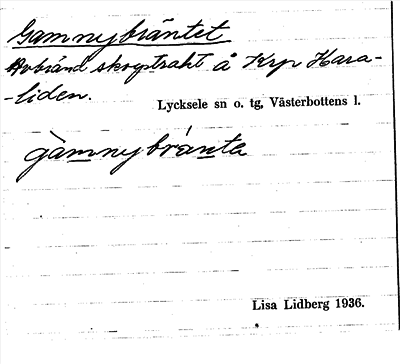 Gamnybräntet
Avbränd skogstrakt å Krp Hara-
-liden.
Lycksele sn o. tg, Västerbottens l.
gàmnybránta
Lisa Lidberg 1936.